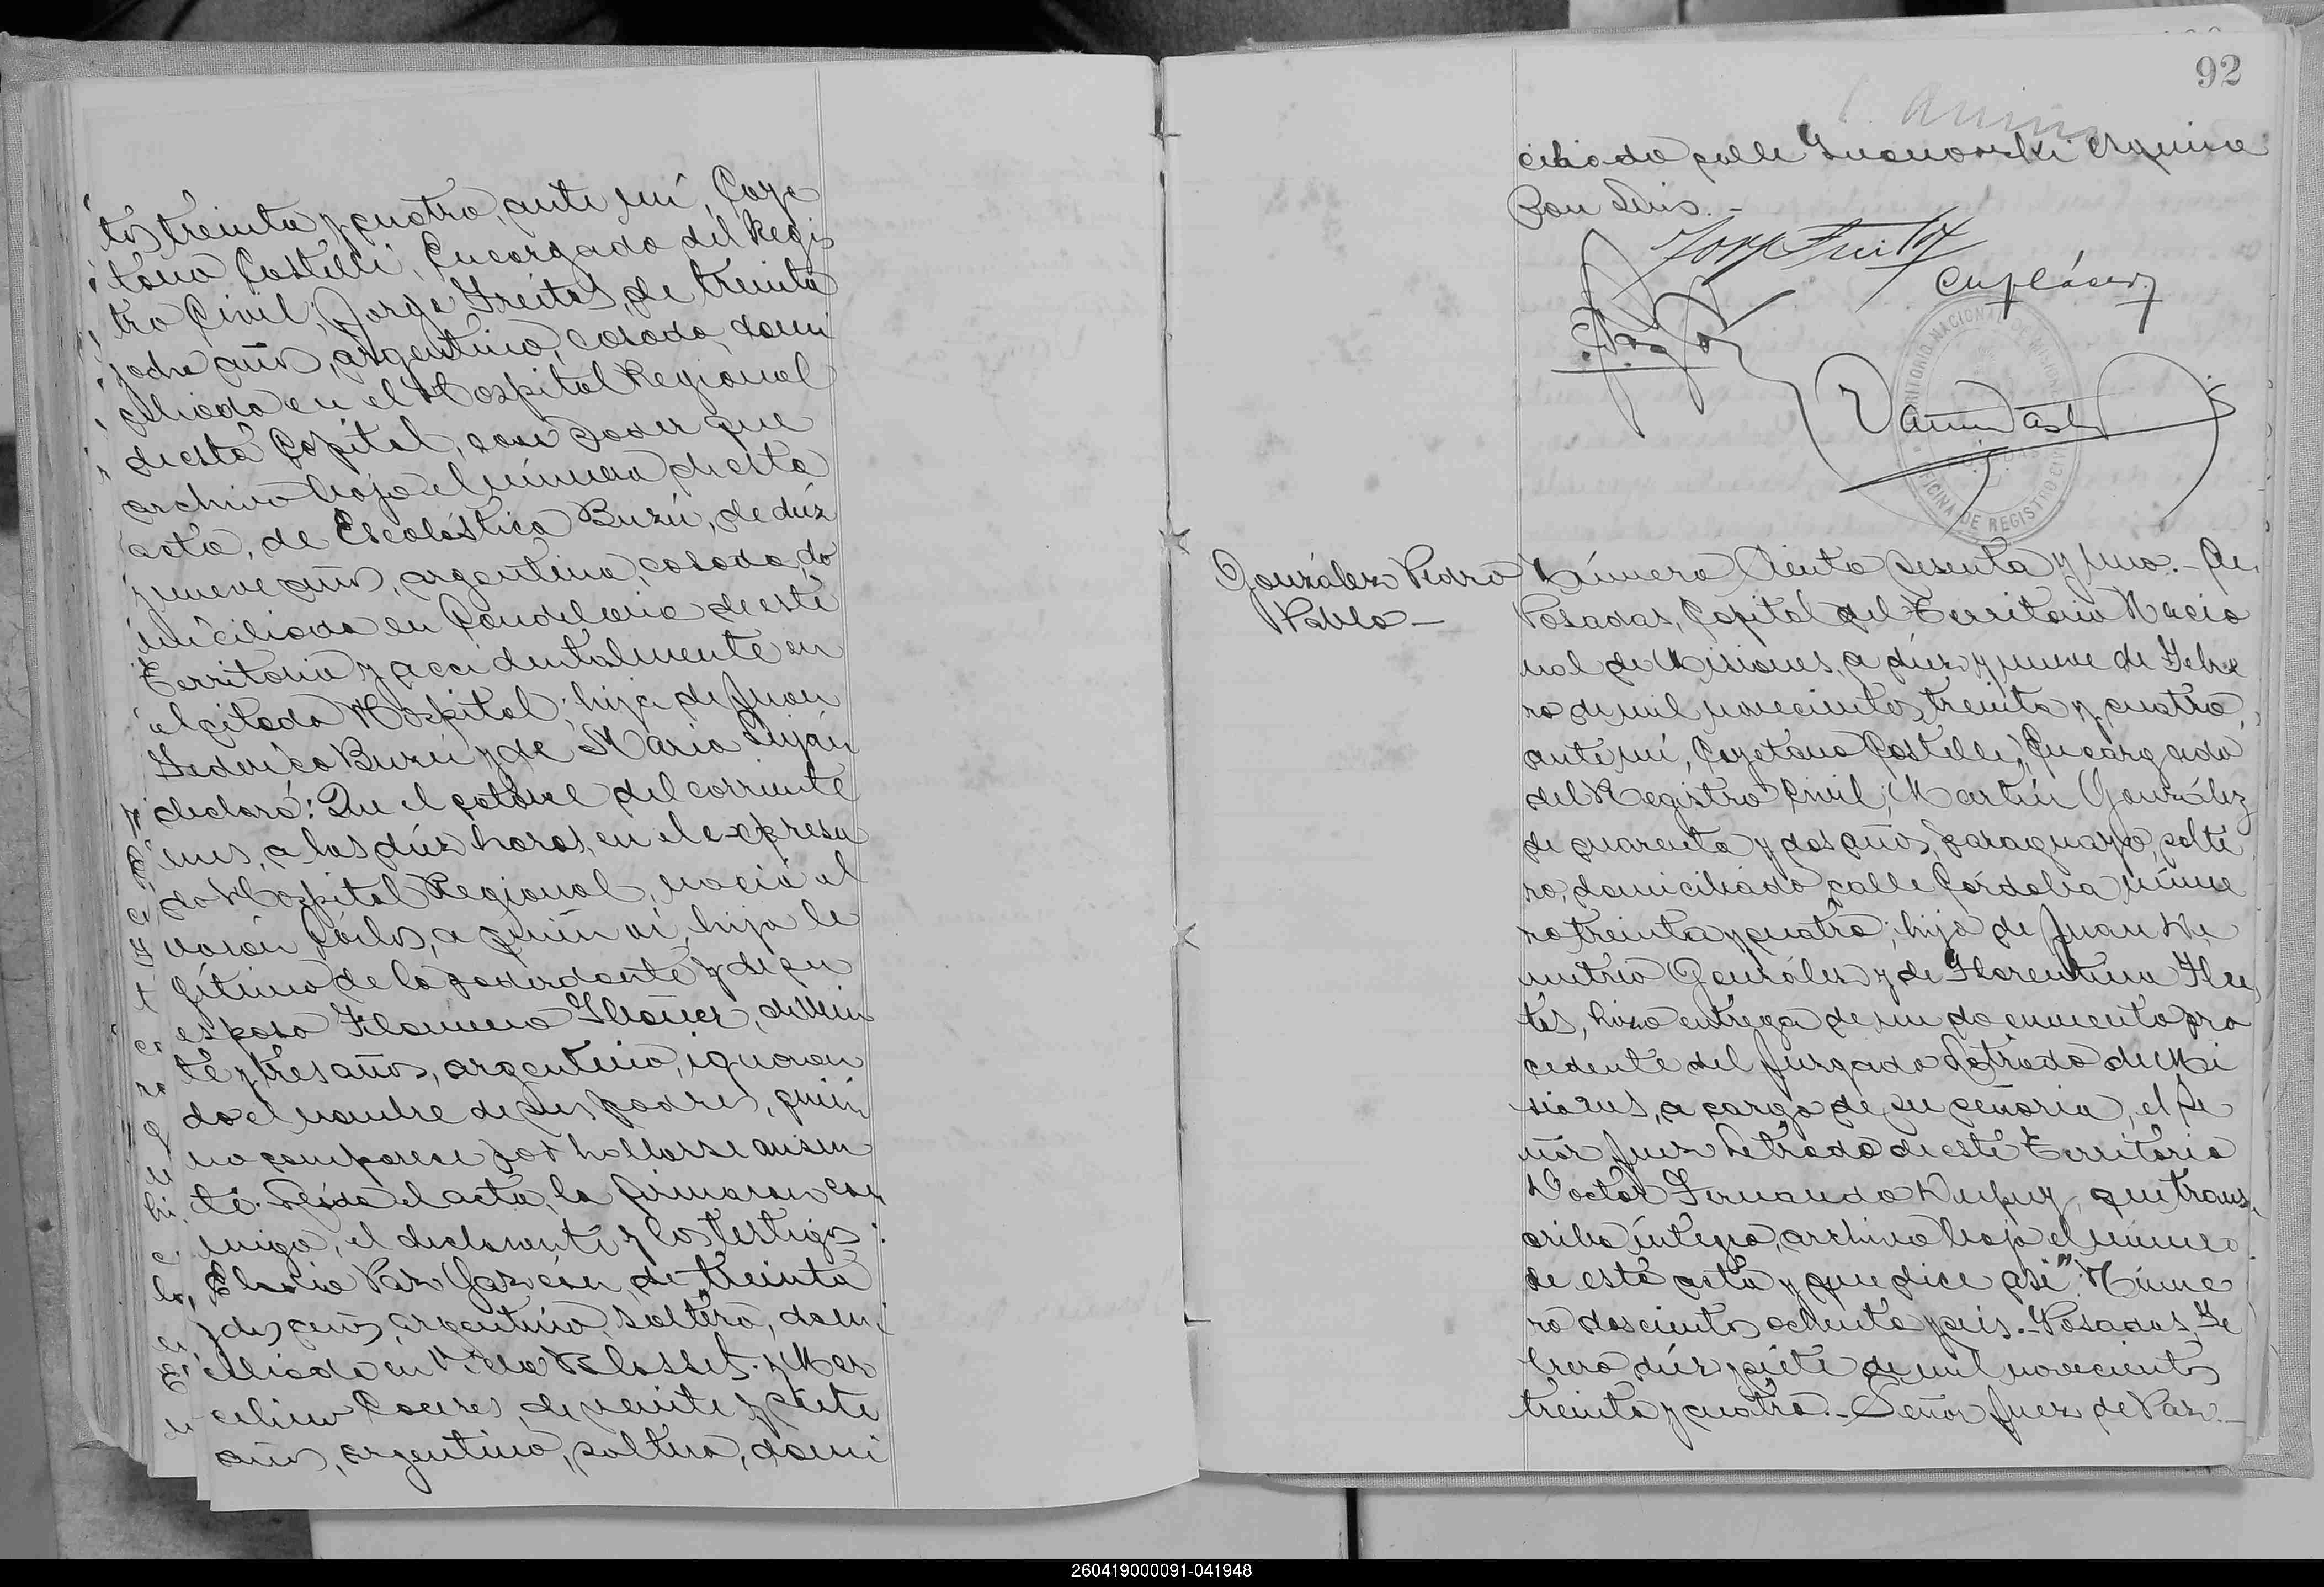 tos treinta y cuatro, ante mí, Caye
tano Castelli, Encargado del Regis
tro Civil; Jorge Freites, de treinta
y ocho años, argentino, casado, domi
ciliado en el Hospital Regional
de esta Capital, con poder que
archivo bajo el número de esta
acta, de Escolástica Buzú, de diez
y nueve años, argentina, casada, do
miciliada en Candelaria de este
Territorio y accidentalmente en
el citado Hospital; hija de Juan
Federico Buzú y de María Luján
declaró: Que el catorce del corriente
mes, a las diez horas, en el expresa
do Hospital Regional, nació el
varón Carlos, a quien ví, hijo le
gítimo de la poderdante y de su
esposo Filomeno Ibañez, de vein
te y tres años, argentino, ignoran
do el nombre de sus padres, quien
no comparece por hallarse ausen
te. Leída el acta, la firmaron con
migo, el declarante y los testigos:
Eladio Paz Garzón, de treinta
y dos años, argentino, soltero, domi
ciliado en Villa y Mar
celino Caceres, de veinte y siete
años, argentino, soltero, domi
92
ciliado calle esquina
San Luis.-
TERRITORIO NACIONAL DE MISIONES
POSADAS
OFICINA DE REGISTRO CIVIL
González Pedro
Pablo-
Número Ciento sesenta y uno.- En
Posadas, Capital del Territorio Nacio
nal de Misiones, a diez y nueve de Febre
ro de mil novecientos treinta y cuatro,
ante mí, Cayetano Castelli, Encargado
del Registro Civil; Martín González
de cuarenta y dos años, paraguayo, solte
ro, domiciliado calle Córdoba núme
ro treinta y cuatro; hijo de Juan De
metrio González y de Florentina Flei
tes, hizo entrega de un documento pro
cedente del Juzgado Letrado de Mi
siones, a cargo de su señoría, el Se
ñor Juez Letrado de este Territorio
Doctor Fernando Dupuy, que trans
cribo íntegro, archivo bajo el número
de esta acta y que dice así: "Núme
ro doscientos ochenta y seis.- Posadas, Fe
brero diez y siete de mil novecientos
treinta y cuatro.- Señor Juez de Paz.-
260419000091-041948